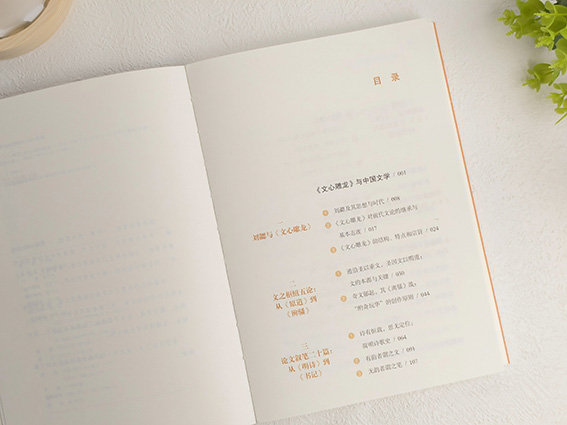 目 录
《文心雕龙》与中国文学 / 001
一
刘勰与《文心雕龙》
1 刘勰及其思想与时代 / 008
2 《文心雕龙》对前代文论的继承与
基本态度 / 017
3 《文心雕龙》的结构、特点和识的 / 024
二
文之枢纽五论：
从《原道》到
《辨骚》
1 道沿圣以垂文，圣因文以明道：
文的本源与关键 / 030
2 奇文郁起，其《离骚》哉：
“酌奇玩华”的创作原则 / 044
三
论文叙笔二十篇：
从《明诗》到
《书记》
1 诗有恒裁，思无定位：
简明诗歌史 / 064
2 有韵者谓之文 / 091
3 无韵者谓之笔 / 107